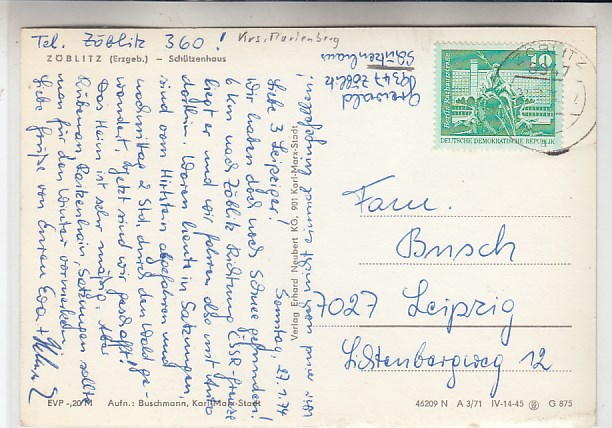 Tel. Zöblitz 360!
Krs. Marienberg
ZÖBLITZ (Erzgeb.) — Schützenhaus
Grenwald
9347 Zöblitz
Schützenhaus
ZÖBLITZ
9347
10
DEUTSCHE DEMOKRATISCHE REPUBLIK
wird man nicht einmal angefallen!
Samstag, 27.1.74
Liebe 3 Leipziger!
Wir haben doch noch Schnee gefunden!
6 km nach Zöblitz Richtung ČSSR-Grenze
liegt er und wir fahren also mit Auto
dorthin. Waren heute in Satzungen,
sind vom Hirtstein abgefahren und
nachmittag 2 Std. durch den Wald ge-
wandert. Jetzt sind wir geschafft!
Das Heim ist sehr mäßig. Aber
Rübenau, Reitzenhain, Satzungen sollte
man für den Winter vormerken.
Liebe Grüße von Euren Eva +
Fam.
Busch
7027 Leipzig
Lichtenbergweg 12
Verlag Erhard Neubert KG, 901 Karl-Marx-Stadt
EVP -,20 M Aufn.: Buschmann, Karl-Marx-Stadt
46209 N A 3/71 IV-14-45 G 875